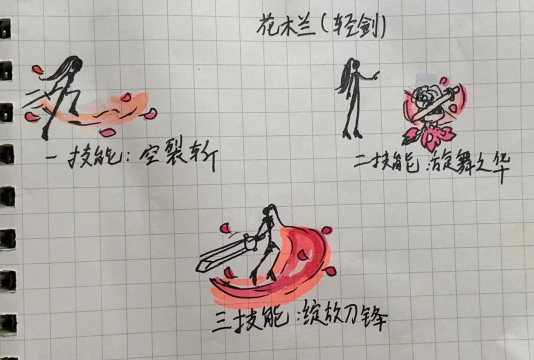 花木兰(轻剑)
一技能:空裂斩
二技能:旋舞之华
三技能:绽放刀锋